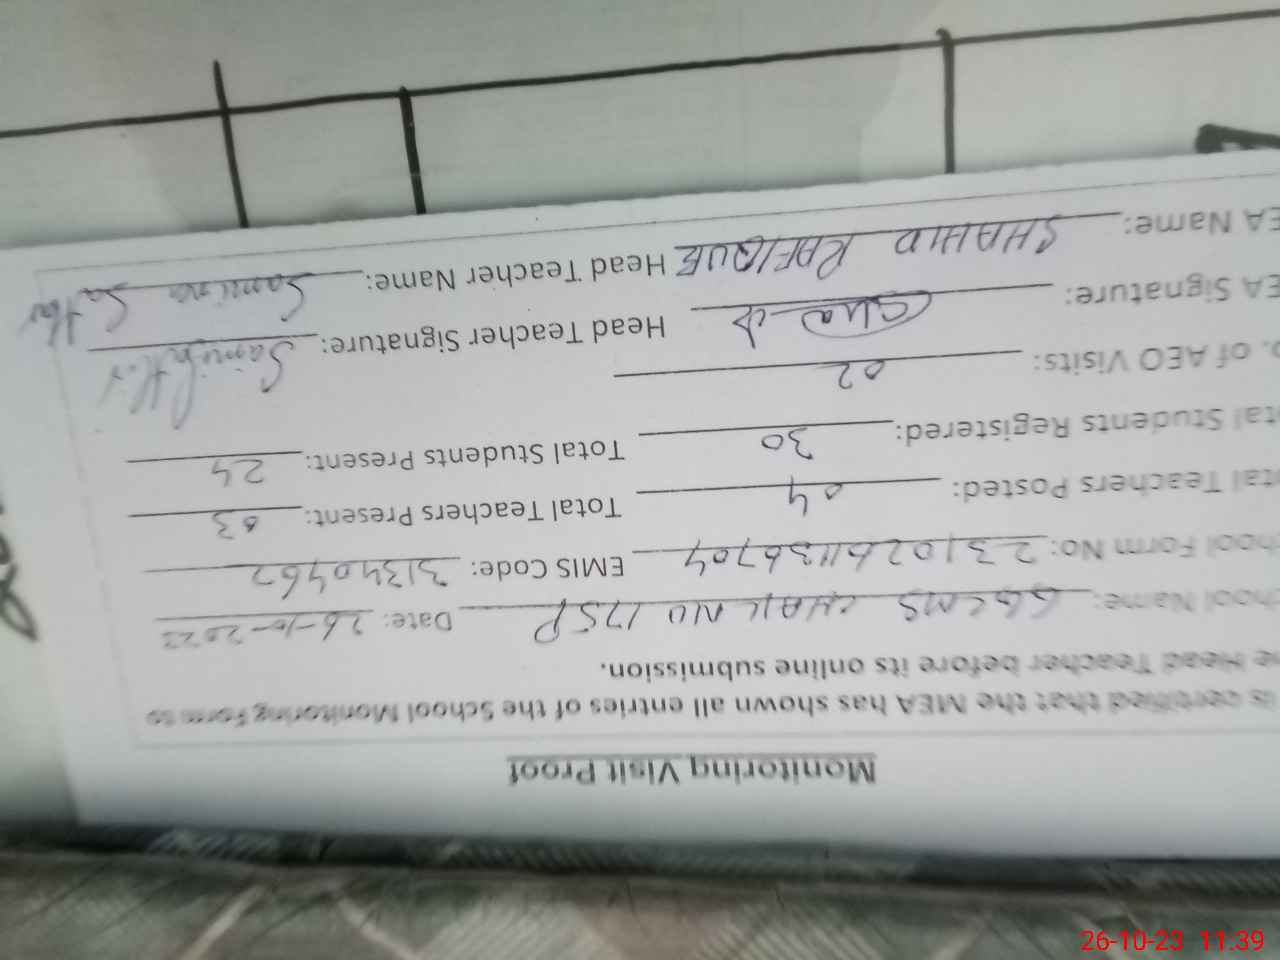 Monitoring Visit Proof
is certified that the MEA has shown all entries of the School Monitoring Form to
e Head Teacher before its online submission.
hool Name: GGCMS CHAK NO 175P Date: 26-10-2023
hool Form No: 2310261136704 EMIS Code: 31340462
tal Teachers Posted: 04 Total Teachers Present: 03
tal Students Registered: 30 Total Students Present: 24
o. of AEO Visits: 02
EA Signature: Head Teacher Signature:
EA Name: SHAHID RAFIQUE Head Teacher Name: Samina Sattar
26-10-23 11:39